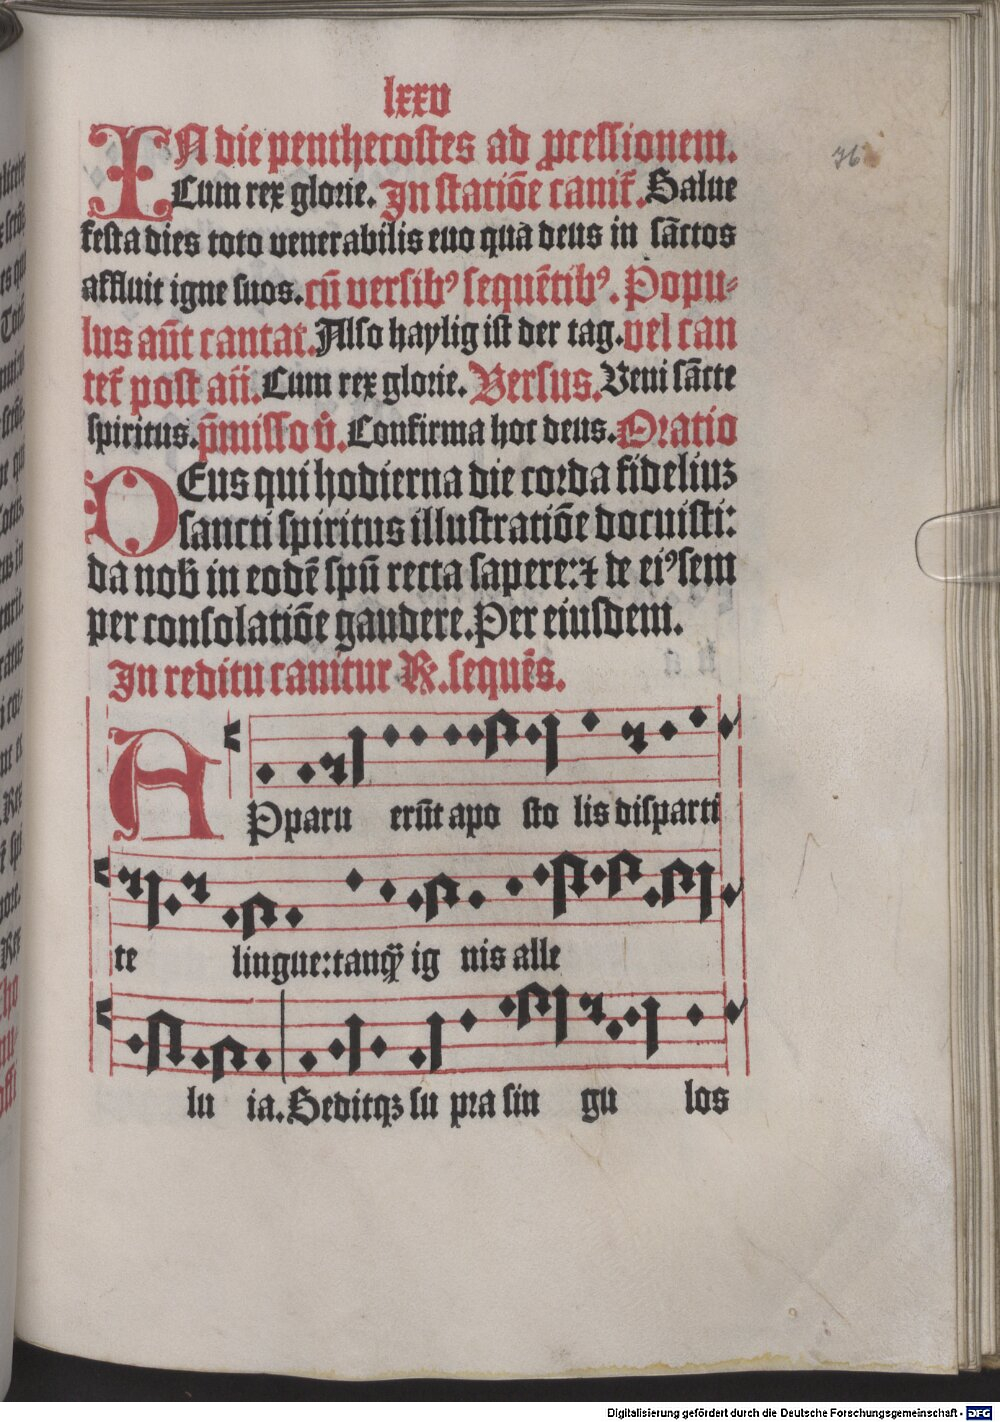 lxxv
76
IN die penthecostes ad ꝓcessionem.
Cum rex glorie. In statiōe canit̄. Salue
festa dies toto venerabilis euo qua deus in sāctos
affluit igne suos. cū versibꝰ sequētibꝰ. Popu⸗
lus aūt cantat. Also haylig ist der tag. vel can
tet̄ post aīi. Cum rex glorie. Versus. Veni sācte
spiritus. p̄misso v̄. Confirma hoc deus. Oratio
DEus qui hodierna die corda fideliuz
sancti spiritus illustratiōe docuisti:
da nob̄ in eodē spū recta sapere: ⁊ de eiꝰsem
per consolatiōe gaudere. Per eiusdem.
In reditu canitur ℟. sequēs.
APparu erūt apo sto lis disparti
te lingue: tanqȝ̄ ig nis alle
lu ia. Seditqꝫ su pra sin gu los
Digitalisierung gefördert durch die Deutsche Forschungsgemeinschaft - DFG